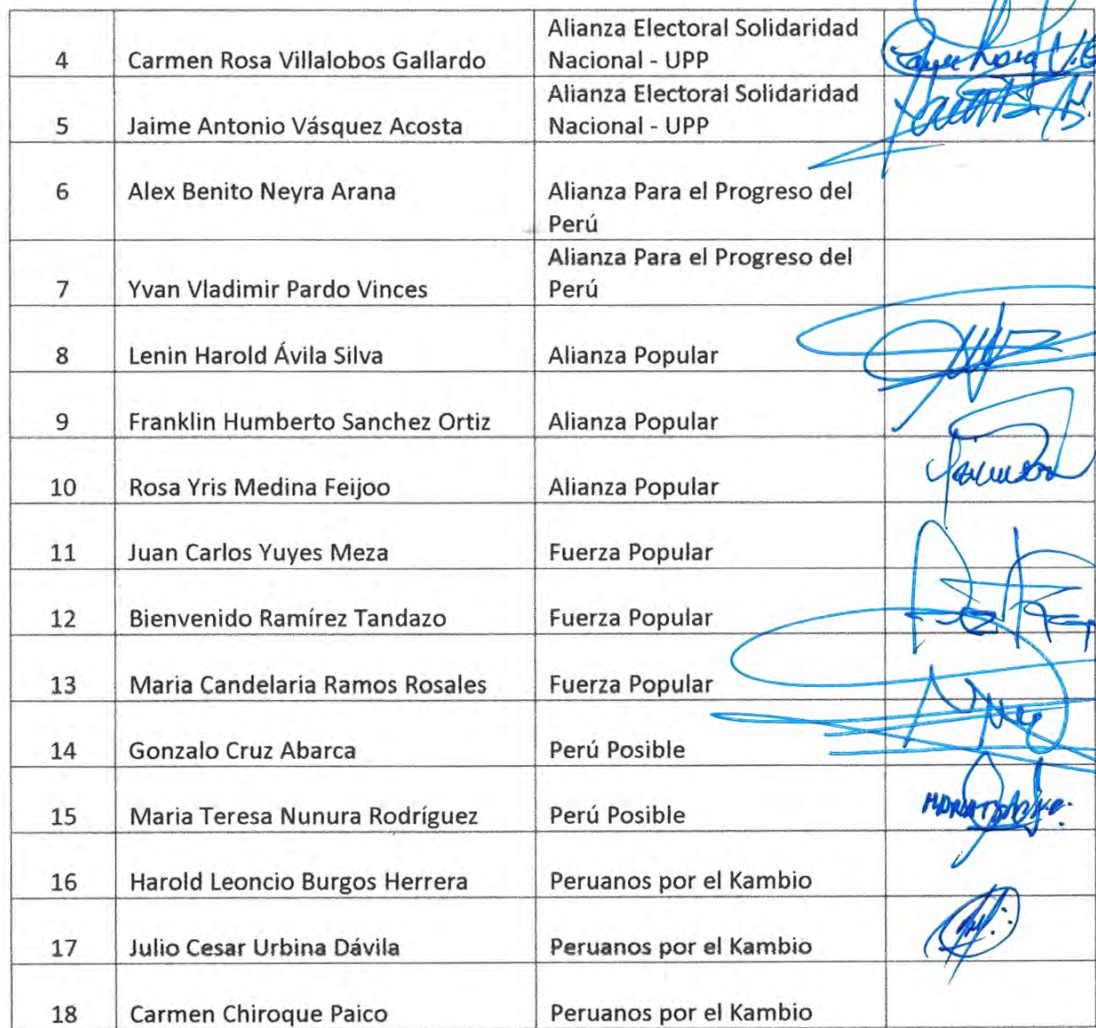 Alianza Electoral Solidaridad
4 Carmen Rosa Villalobos Gallardo Nacional - UPP
Alianza Electoral Solidaridad
5 Jaime Antonio Vásquez Acosta Nacional - UPP
6 Alex Benito Neyra Arana Alianza Para el Progreso del
Perú
Alianza Para el Progreso del
7 Yvan Vladimir Pardo Vinces Perú
8 Lenin Harold Ávila Silva Alianza Popular
9 Franklin Humberto Sanchez Ortiz Alianza Popular
10 Rosa Yris Medina Feijoo Alianza Popular
11 Juan Carlos Yuyes Meza Fuerza Popular
12 Bienvenido Ramírez Tandazo Fuerza Popular
13 Maria Candelaria Ramos Rosales Fuerza Popular
14 Gonzalo Cruz Abarca Perú Posible
15 Maria Teresa Nunura Rodríguez Perú Posible
16 Harold Leoncio Burgos Herrera Peruanos por el Kambio
17 Julio Cesar Urbina Dávila Peruanos por el Kambio
18 Carmen Chiroque Paico Peruanos por el Kambio